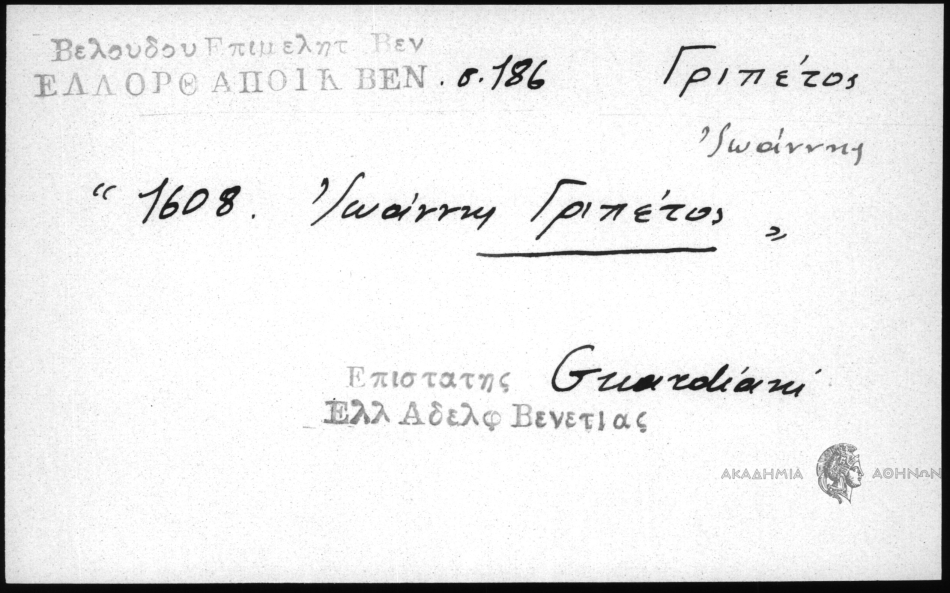 Βελουδου Επιμελητ Βεν
ΕΛΛΟΡΘ ΑΠΟΙΚ ΒΕΝ. σ. 186 Γριπέτος
Ἰωάννης
“ 1608. Ἰωάννης Γριπέτος „
Επιστατης Guardiani
Ελλ Αδελφ Βενετιας
ΑΚΑΔΗΜΙΑ ΑΘΗΝΩΝ